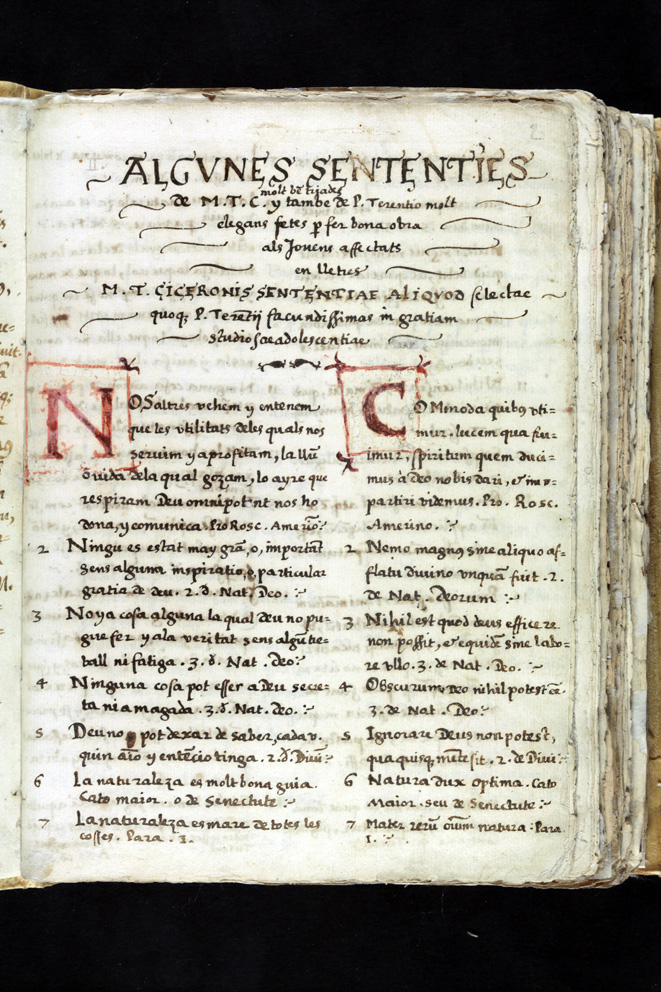 2
ALGVNES SENTENTIES
molt bē tijades
de M. T. C. y tambe de P. Terentio molt
elegans fetes p fer bona obra
als Jovens affectats
en lletres
M. T. CICERONIS SENTENTIAE ALIQVOD selectae
quoq; P. Terētij facundissimas in gratiam
studiosae adolescentiae
NOSaltres vehem y entenem
que les vtilitats deles quals nos
servim y aprofitam, la llū
o vida dela qual gozam, lo ayre que
respiram Deu omnipotnt nos ho
dona, y comunica. Pro Rosc. Amerīo
2 Ningu es estat may grā, o, importāt
sens alguna inspiratio, o, particular
gratia de deu. 2. d. Nat. Deo.
3 No ya cosa alguna la qual deu no pu-
gue fer y a la veritat sens algū tre-
ball ni fatiga. 3. d. Nat. Deo
4 Ninguna cosa pot esser a Deu secre-
ta ni amagada. 3. d. Nat. deo.
5 Deu no pot dexar de saber, cada v.
quin aīo y entēcio tinga. 2. d. Diuī
6 La naturaleza es molt bona guia.
Cato maior. o de Senectute
7 La naturaleza es mare de totes les
cosses. Para. 1.
COMmoda quibq vti=
mur. lucem qua frui=
imur, spiritum quem duci=
mus à deo nobis dari, et im
partiri videmus. Pro. Rosc.
Amerino.
2 Nemo magnq sine aliquo af=
flatu diuino vnquā fuit. 2.
de Nat. deorum
3 Nihil est quod deus efficere
non possit, et equidē sine labo=
re vllo. 3. de Nat. Deo.
4 Obscurum Deo nihil potest ēē.
3. de Nat. Deo
5 Ignorare Deus non potest,
qua quisq; mēte sit. 2. de Diui
6 Natura dux optima. Cato
Maior. seu de Senectute
7 Mater rerū oīum natura. Para
1.